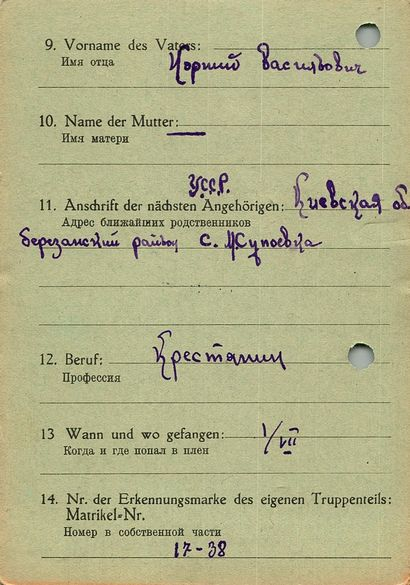 9. Vorname des Vaters:
Имя отца
Корний Васильович
10. Name der Mutter: —
Имя матери
УССР.
11. Anschrift der nächsten Angehörigen: Киевская об
Адрес ближайших родственников
березанский район С. Жуповка
12. Beruf: Крестянин
Профессия
13 Wann und wo gefangen: 1/VII
Когда и где попал в плен
14. Nr. der Erkennungsmarke des eigenen Truppenteils:
Matrikel-Nr.
Номер в собственной части
17-38